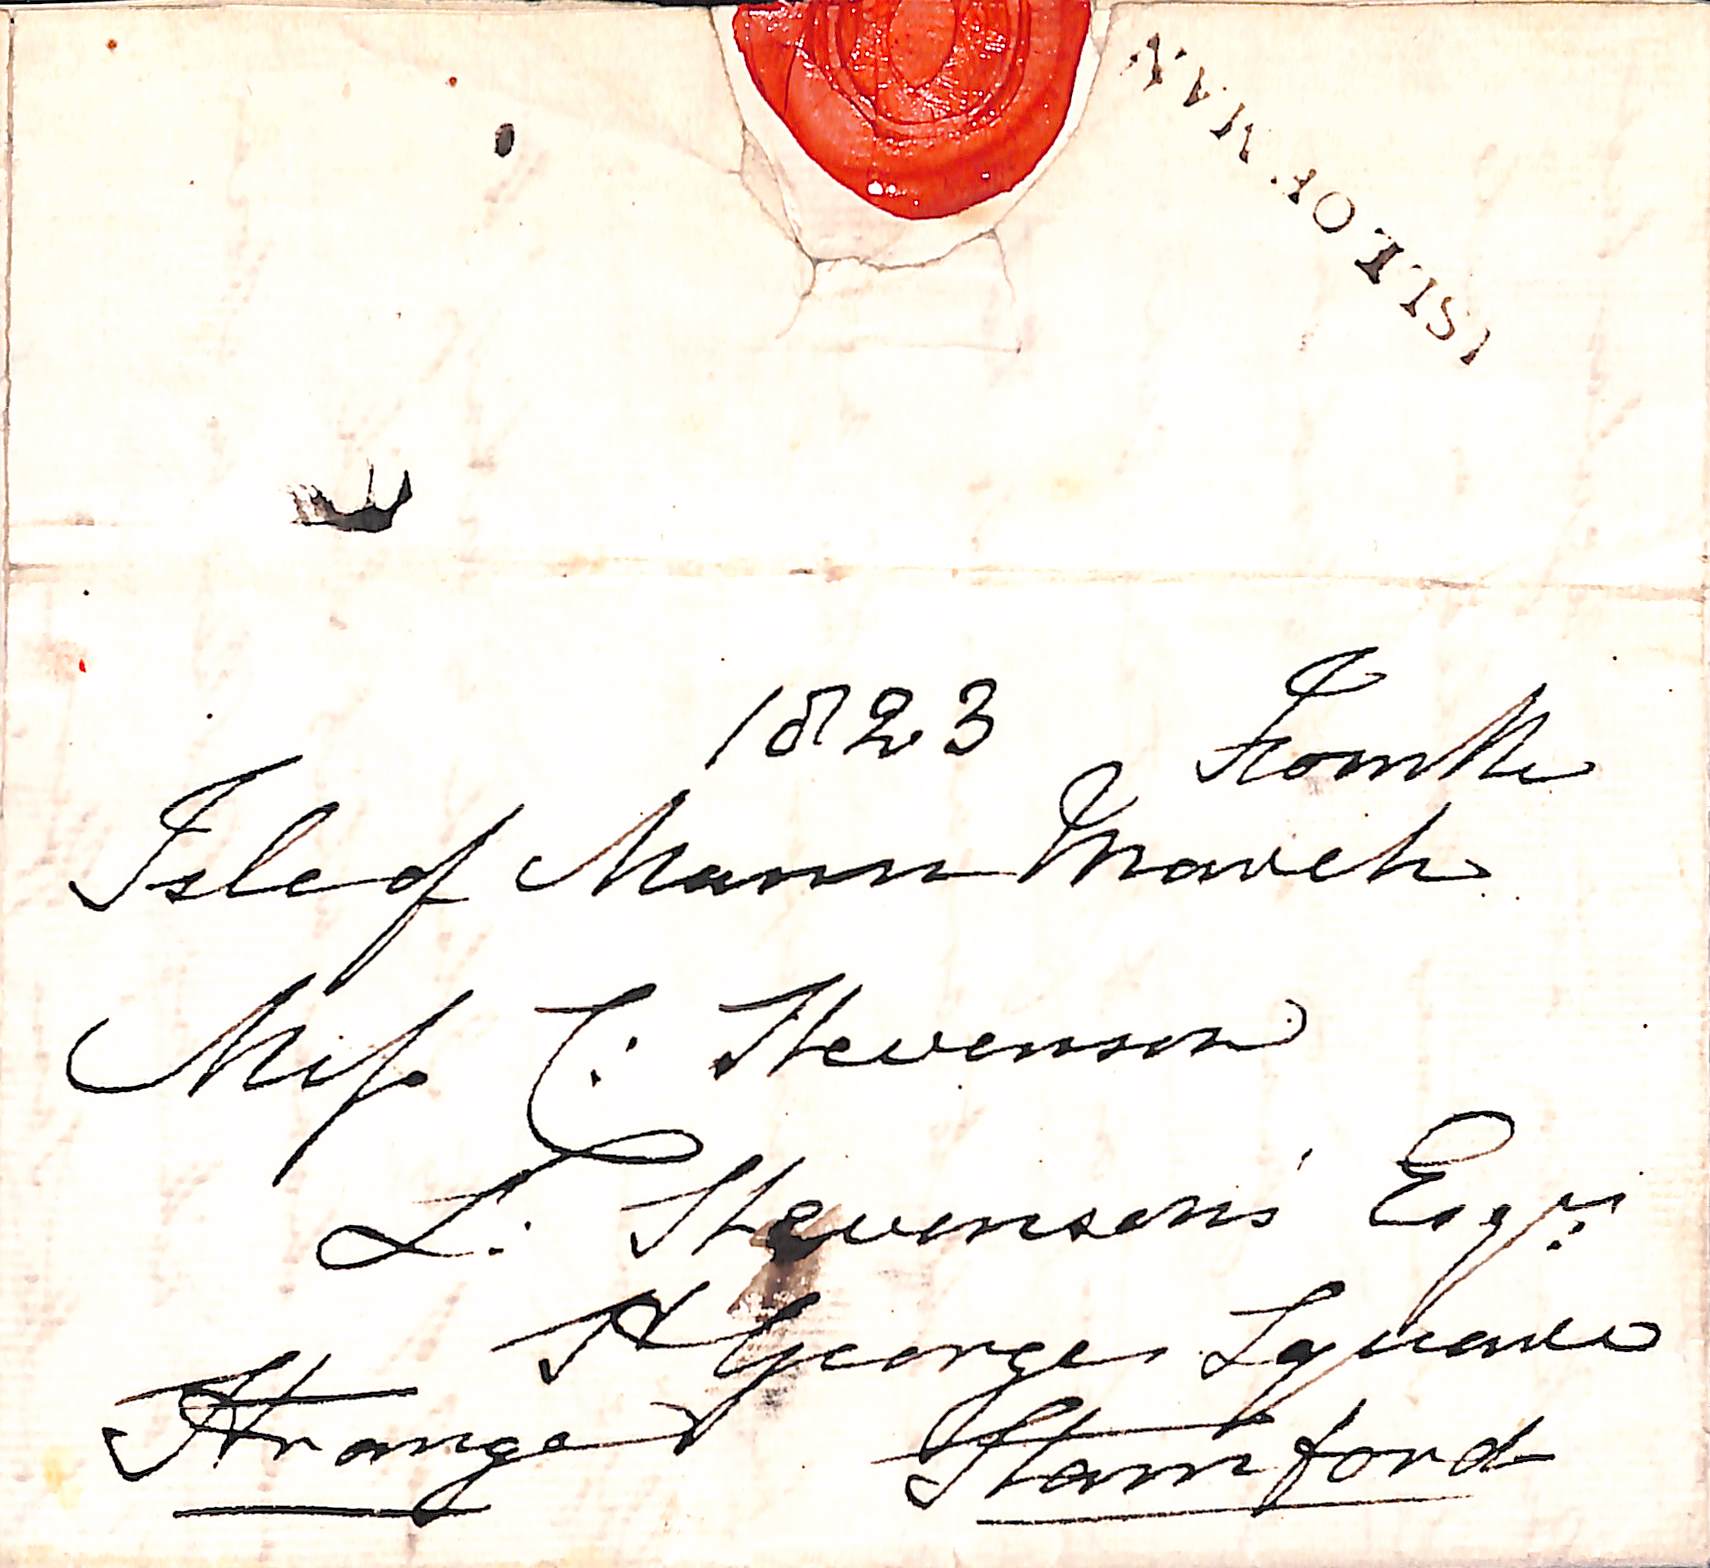 ISLE OF MAN
1823 From the
Isle of Mann March
Miſs C: Stevenson
L: Stevenson's Esqr:
St Georges Square
Stranger Stamford